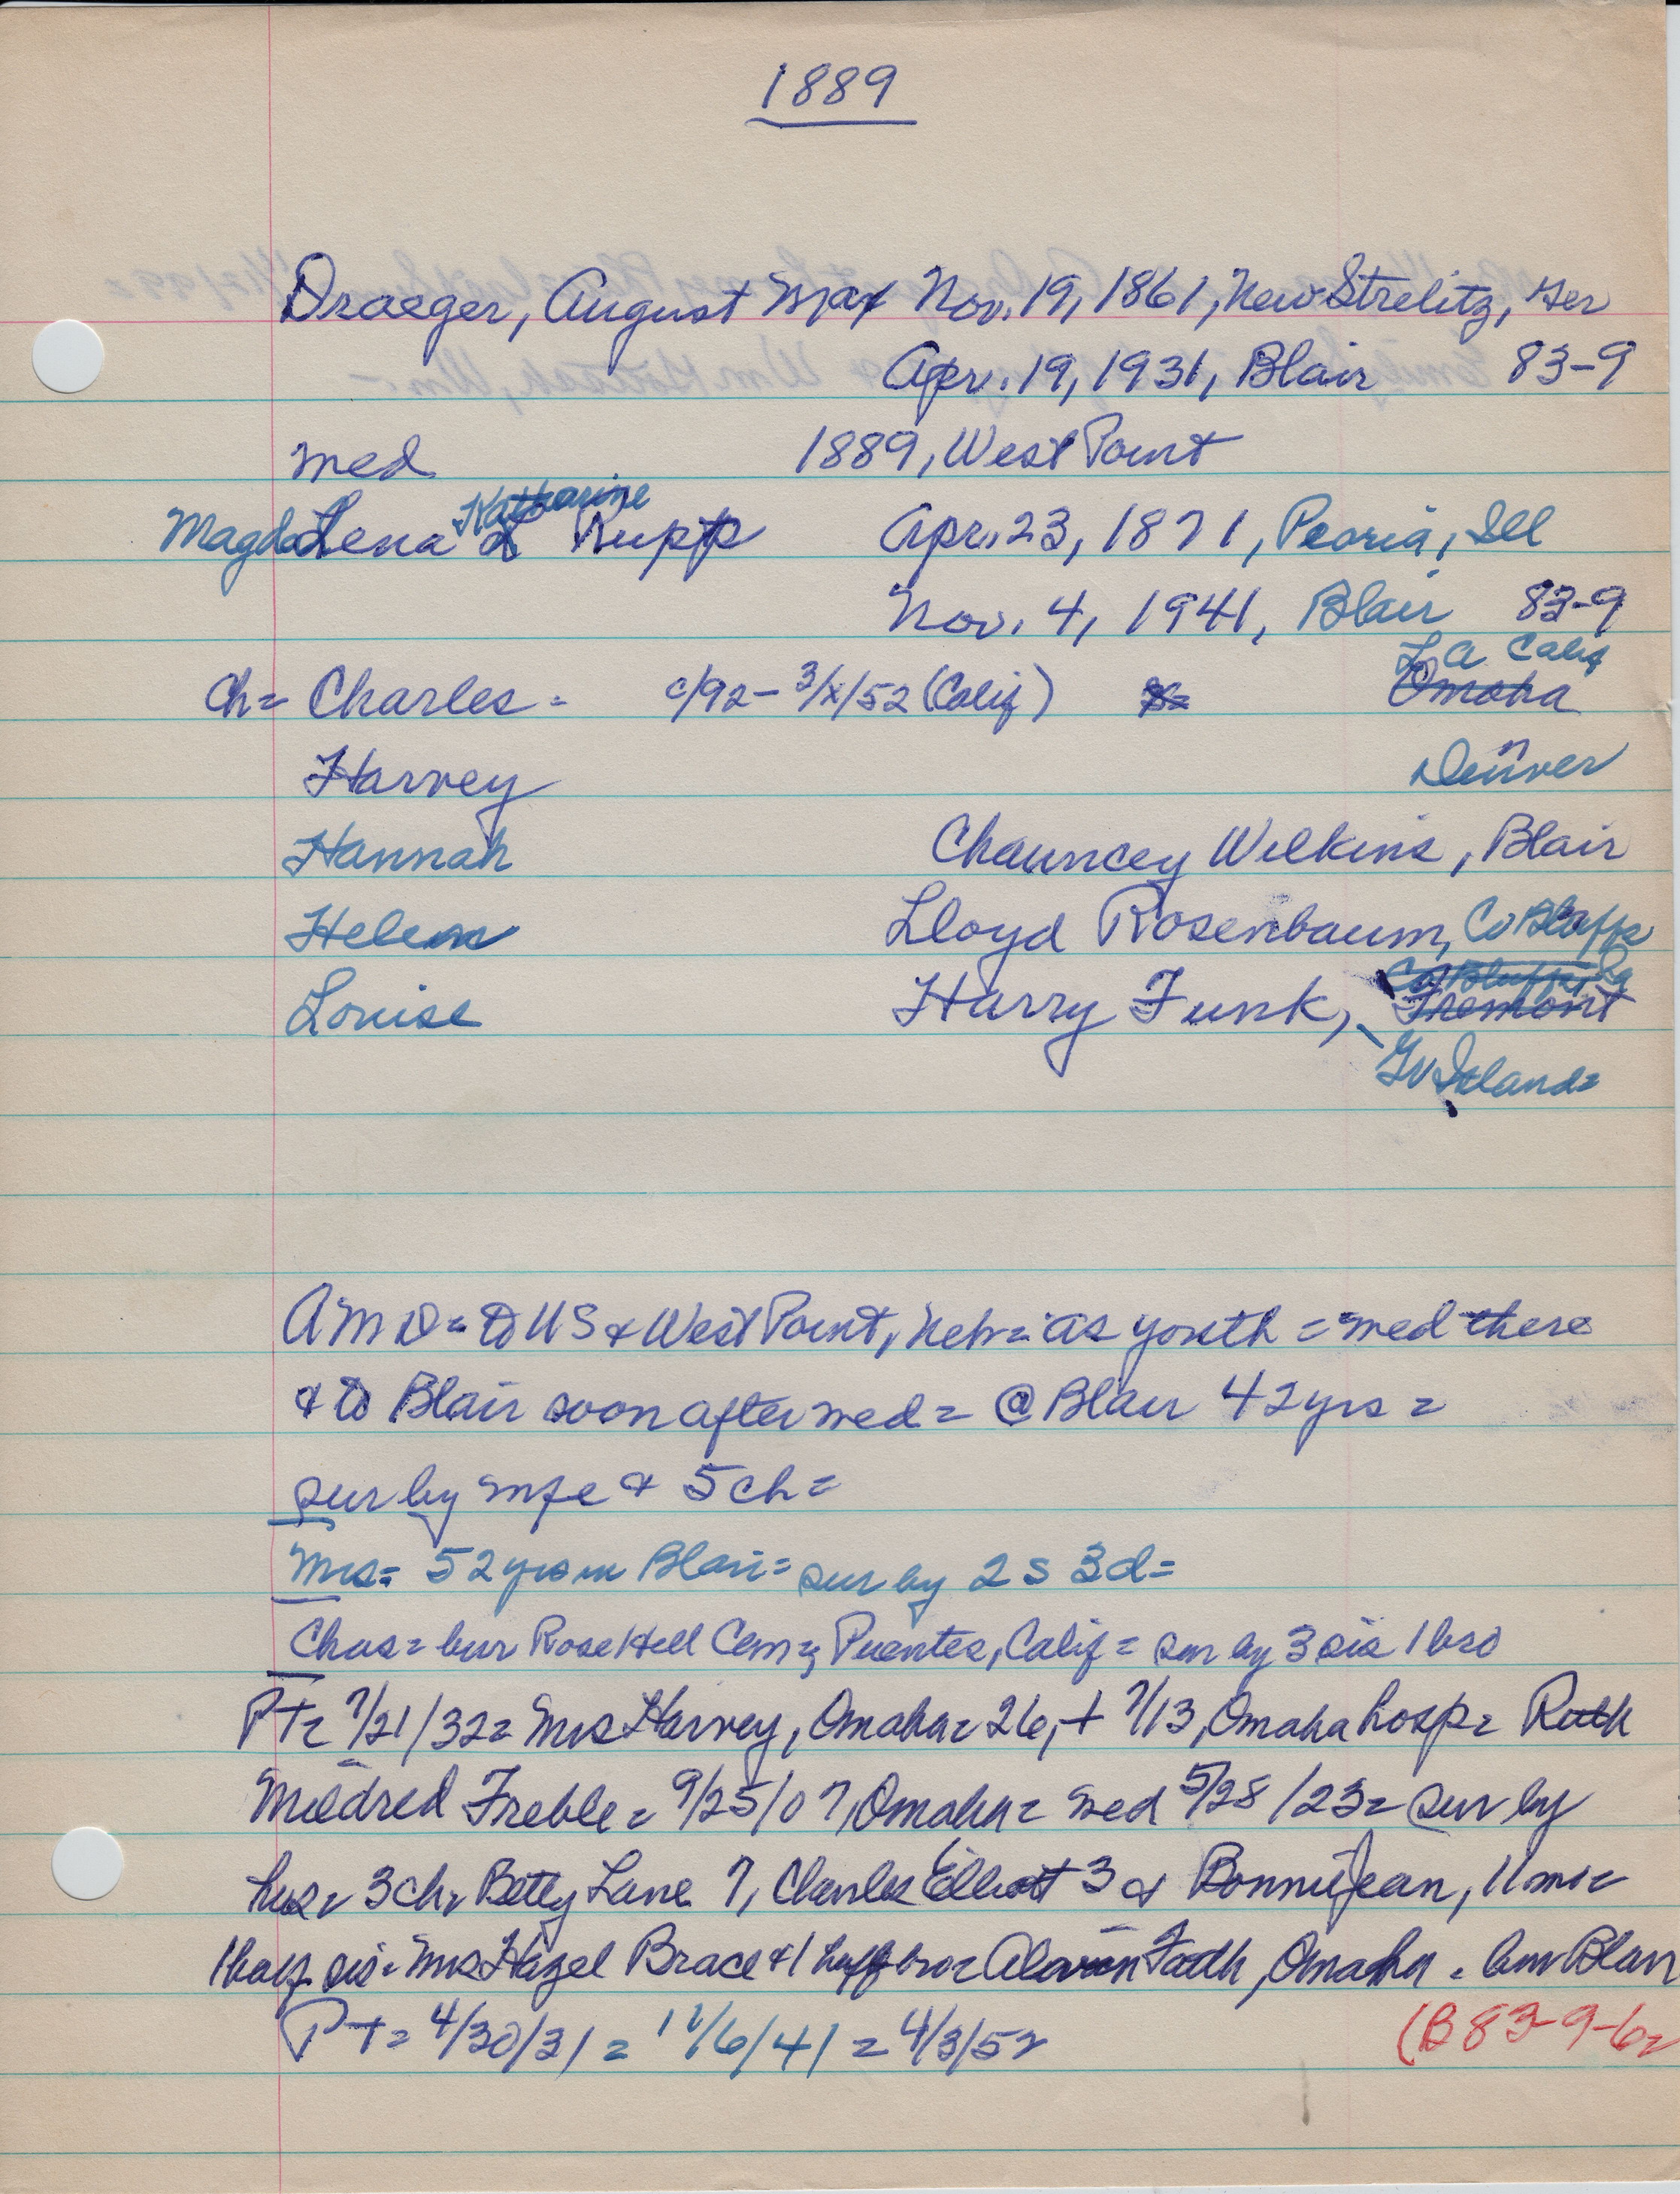 1889
Draeger, August Max Nov. 19, 1861, New Strelitz, Ger
Apr. 19, 1931, Blair 83-9
med 1889, West Point
Katharine
MagdaLena L Rupp Apr. 23, 1871, Peoria, Ill
Nov. 4, 1941, Blair 83-9
L A Calif
Ch= Charles = c/92 - 3/x/52 (Calif) Omaha
Harvey Denver
Hannah Chauncey Wilkins, Blair
Helen Lloyd Rosenbaum, Co Bluffs
Co Bluffs, Ia
Louise Harry Funk, Fremont
Gr Island=
AMD= to US & West Point, Neb= as youth = med there
& to Blair soon after med = @ Blair 42 yrs =
sur by wfe & 5 ch =
Mrs= 52 yrs in Blair= sur by 2 s 3 d=
Chas= bur Rose Hill Cem= Puentes, Calif = sur by 3 sis 1 bro
PT= 7/21/32= Mrs Harvey, Omaha= 26, + 7/13, Omaha hosp= Ruth
Mildred Freble= 9/25/07, Omaha= med 5/28/23= sur by
hus= 3 ch= Betty Lane 7, Charles Elliott 3 & Bonnie Jean, 11 mo=
1 half sis= Mrs Hazel Brace & 1 half bro= Omaha = bur Blair
PT= 4/30/31 = 11/6/41 = 4/3/52
(B 83-9-6=